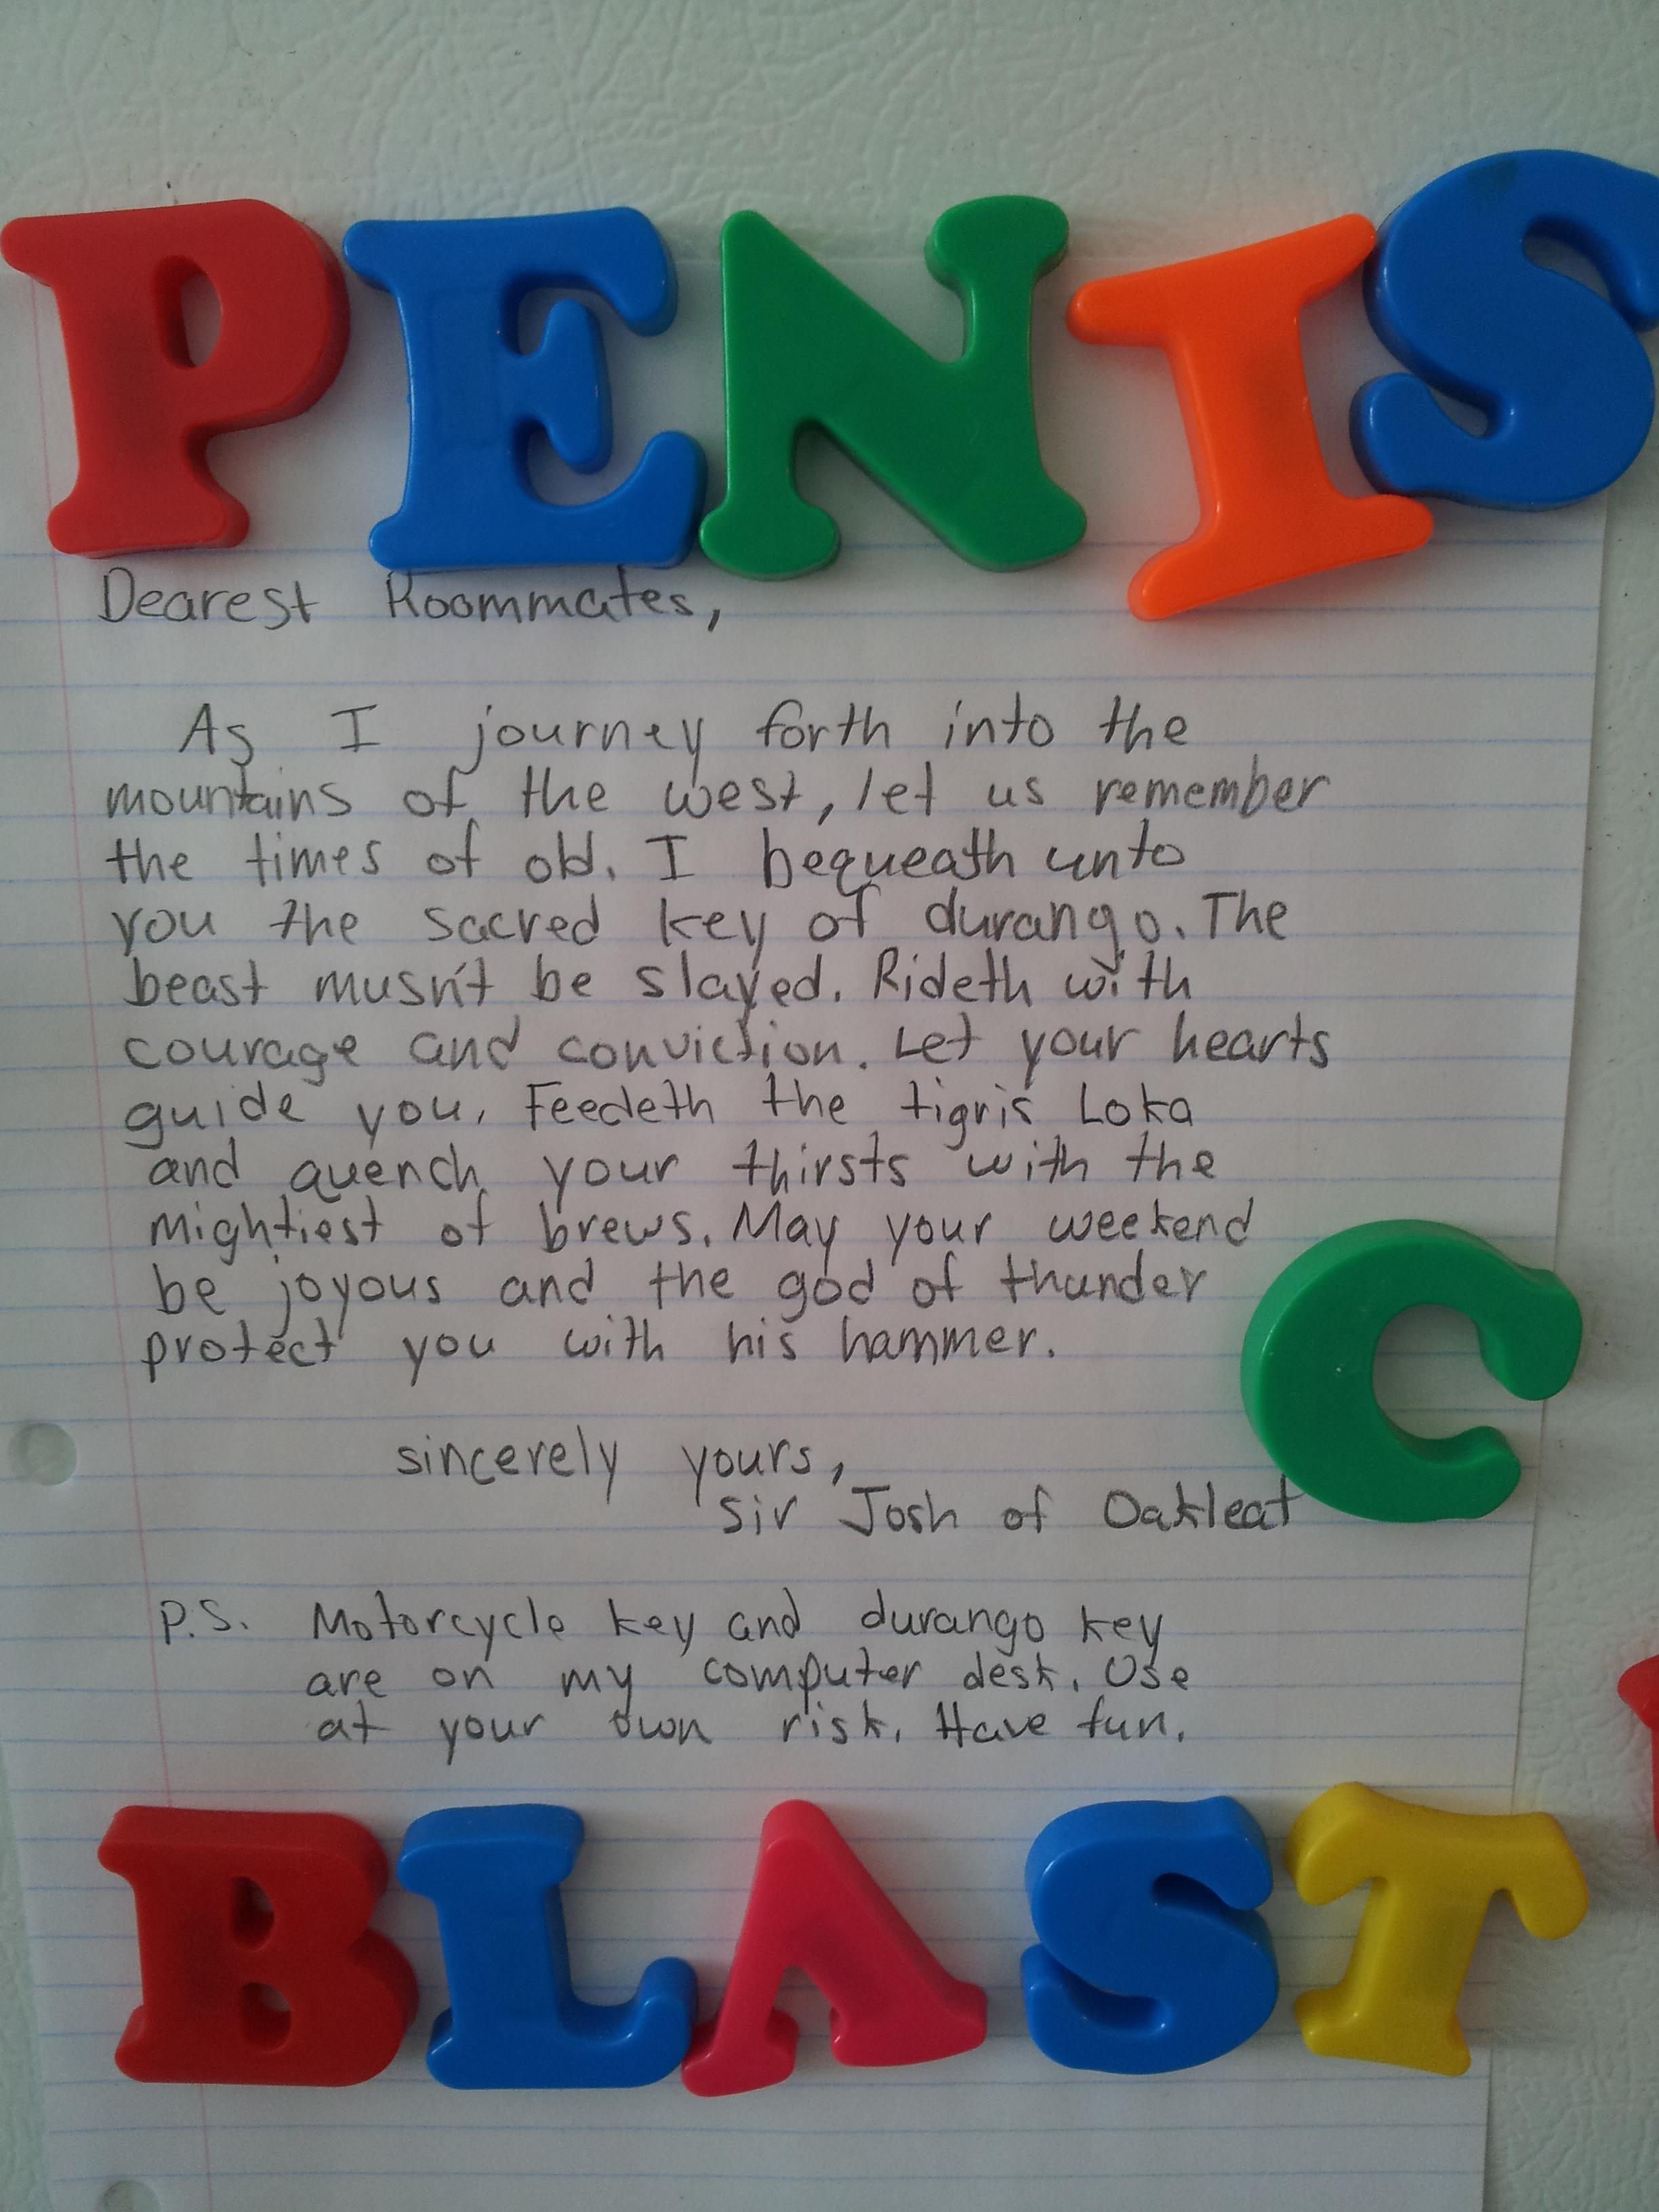 PENIS
Dearest Roommates,
As I journey forth into the
mountains of the west, let us remember
the times of old. I bequeath unto
you the sacred key of durango. The
beast musn't be slayed. Rideth with
courage and conviction. Let your hearts
guide you. Feedeth the tigris Loka
and quench your thirsts with the
mightiest of brews. May your weekend
be joyous and the god of thunder
protect you with his hammer.
C
sincerely yours,
Sir Josh of Oakleaf
P.S. Motorcycle key and durango key
are on my computer desk. Use
at your own risk. Have fun.
BLAST